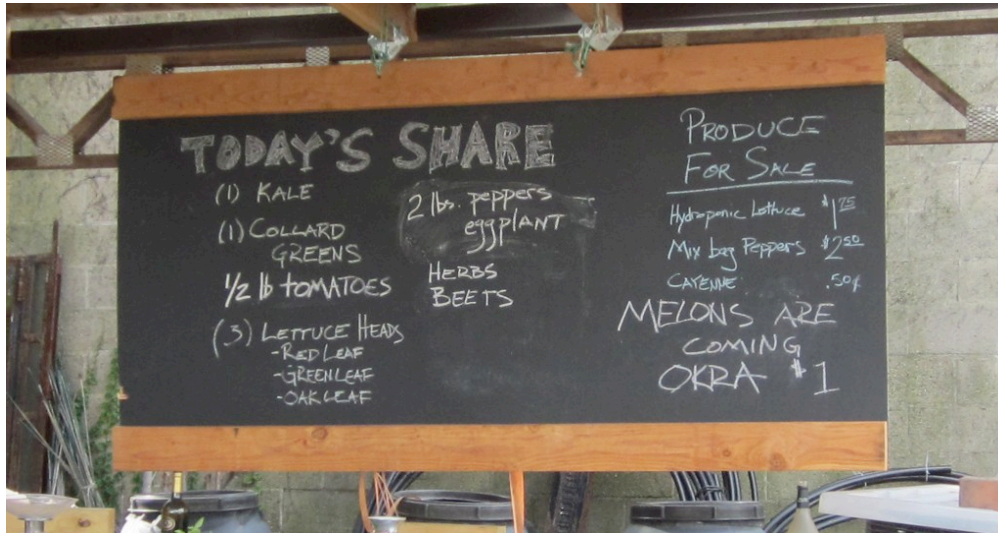 TODAY'S SHARE
(1) KALE
(1) COLLARD
GREENS
1/2 lb TOMATOES
(3) LETTUCE HEADS
-RED LEAF
-GREEN LEAF
-OAK LEAF
2 lbs. peppers
eggplant
HERBS
BEETS
PRODUCE
FOR SALE
Hydroponic Lettuce $1.25
Mix bag Peppers $2.50
CAYENNE .50¢
MELONS ARE
COMING
OKRA $1